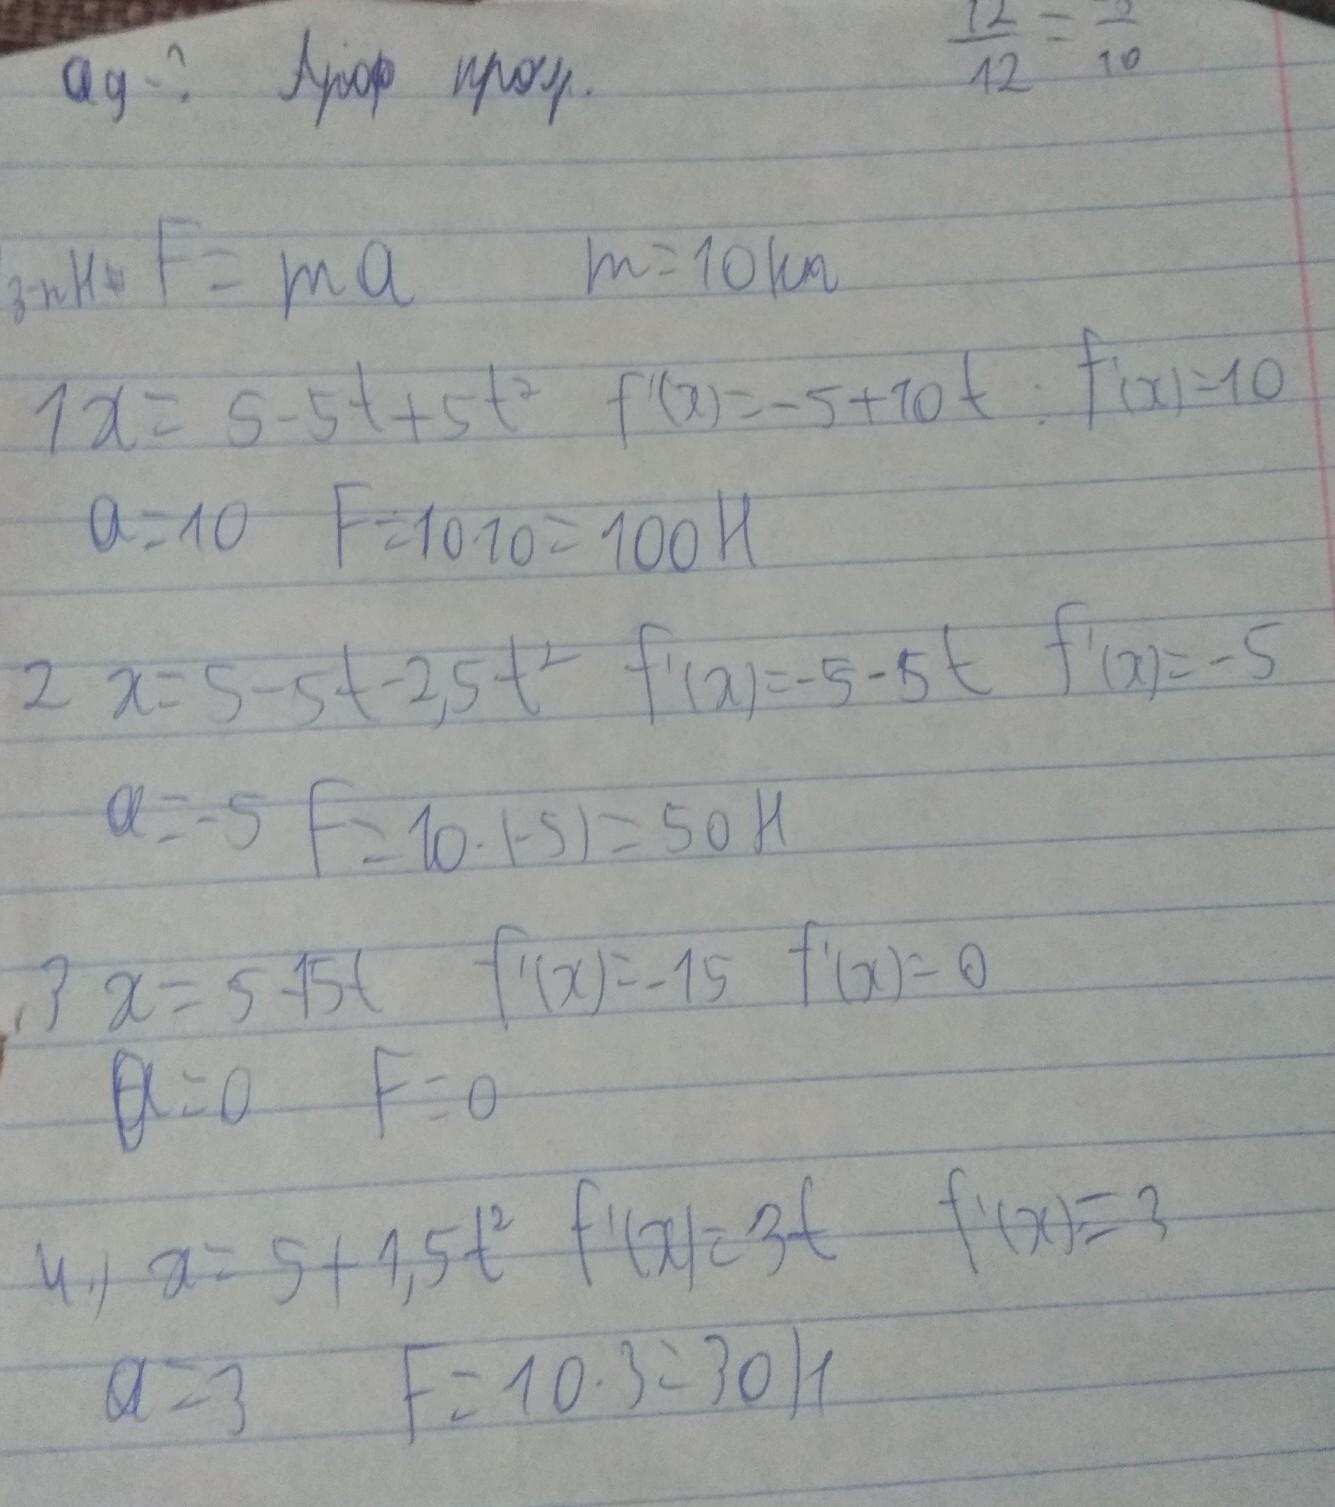 12/12 = /10
a9-?
3-н Н. F = ma m=10 кг
1 x = 5-5t+5t² f'(x)=-5+10t. f'(x)=10
a=10 F=10·10=100H
2 x=5-5t-2,5t² f'(x)=-5-5t f'(x)=-5
a=-5 F=10·(-5)=50H
3 x=5-15t f'(x)=-15 f'(x)=0
a=0 F=0
4.) x=5+1,5t² f'(x)=3t f'(x)=3
a=3 F=10·3=30H